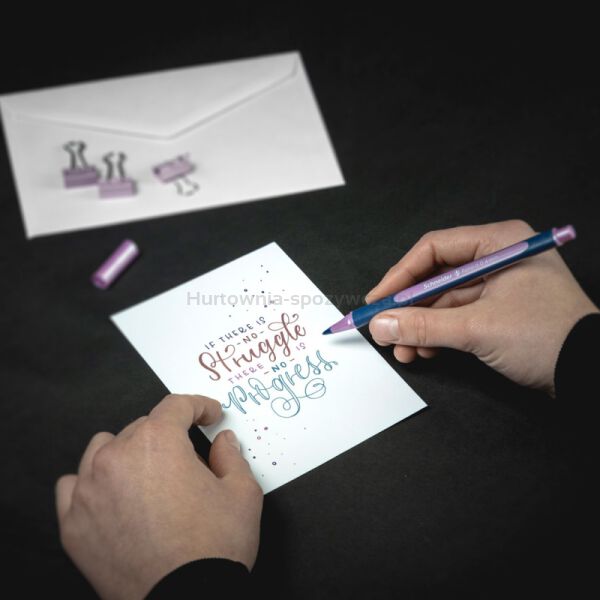 Hurtownia-spozywc
IF THERE IS
-NO-
Struggle
THERE IS
-NO-
progress.
Schneider